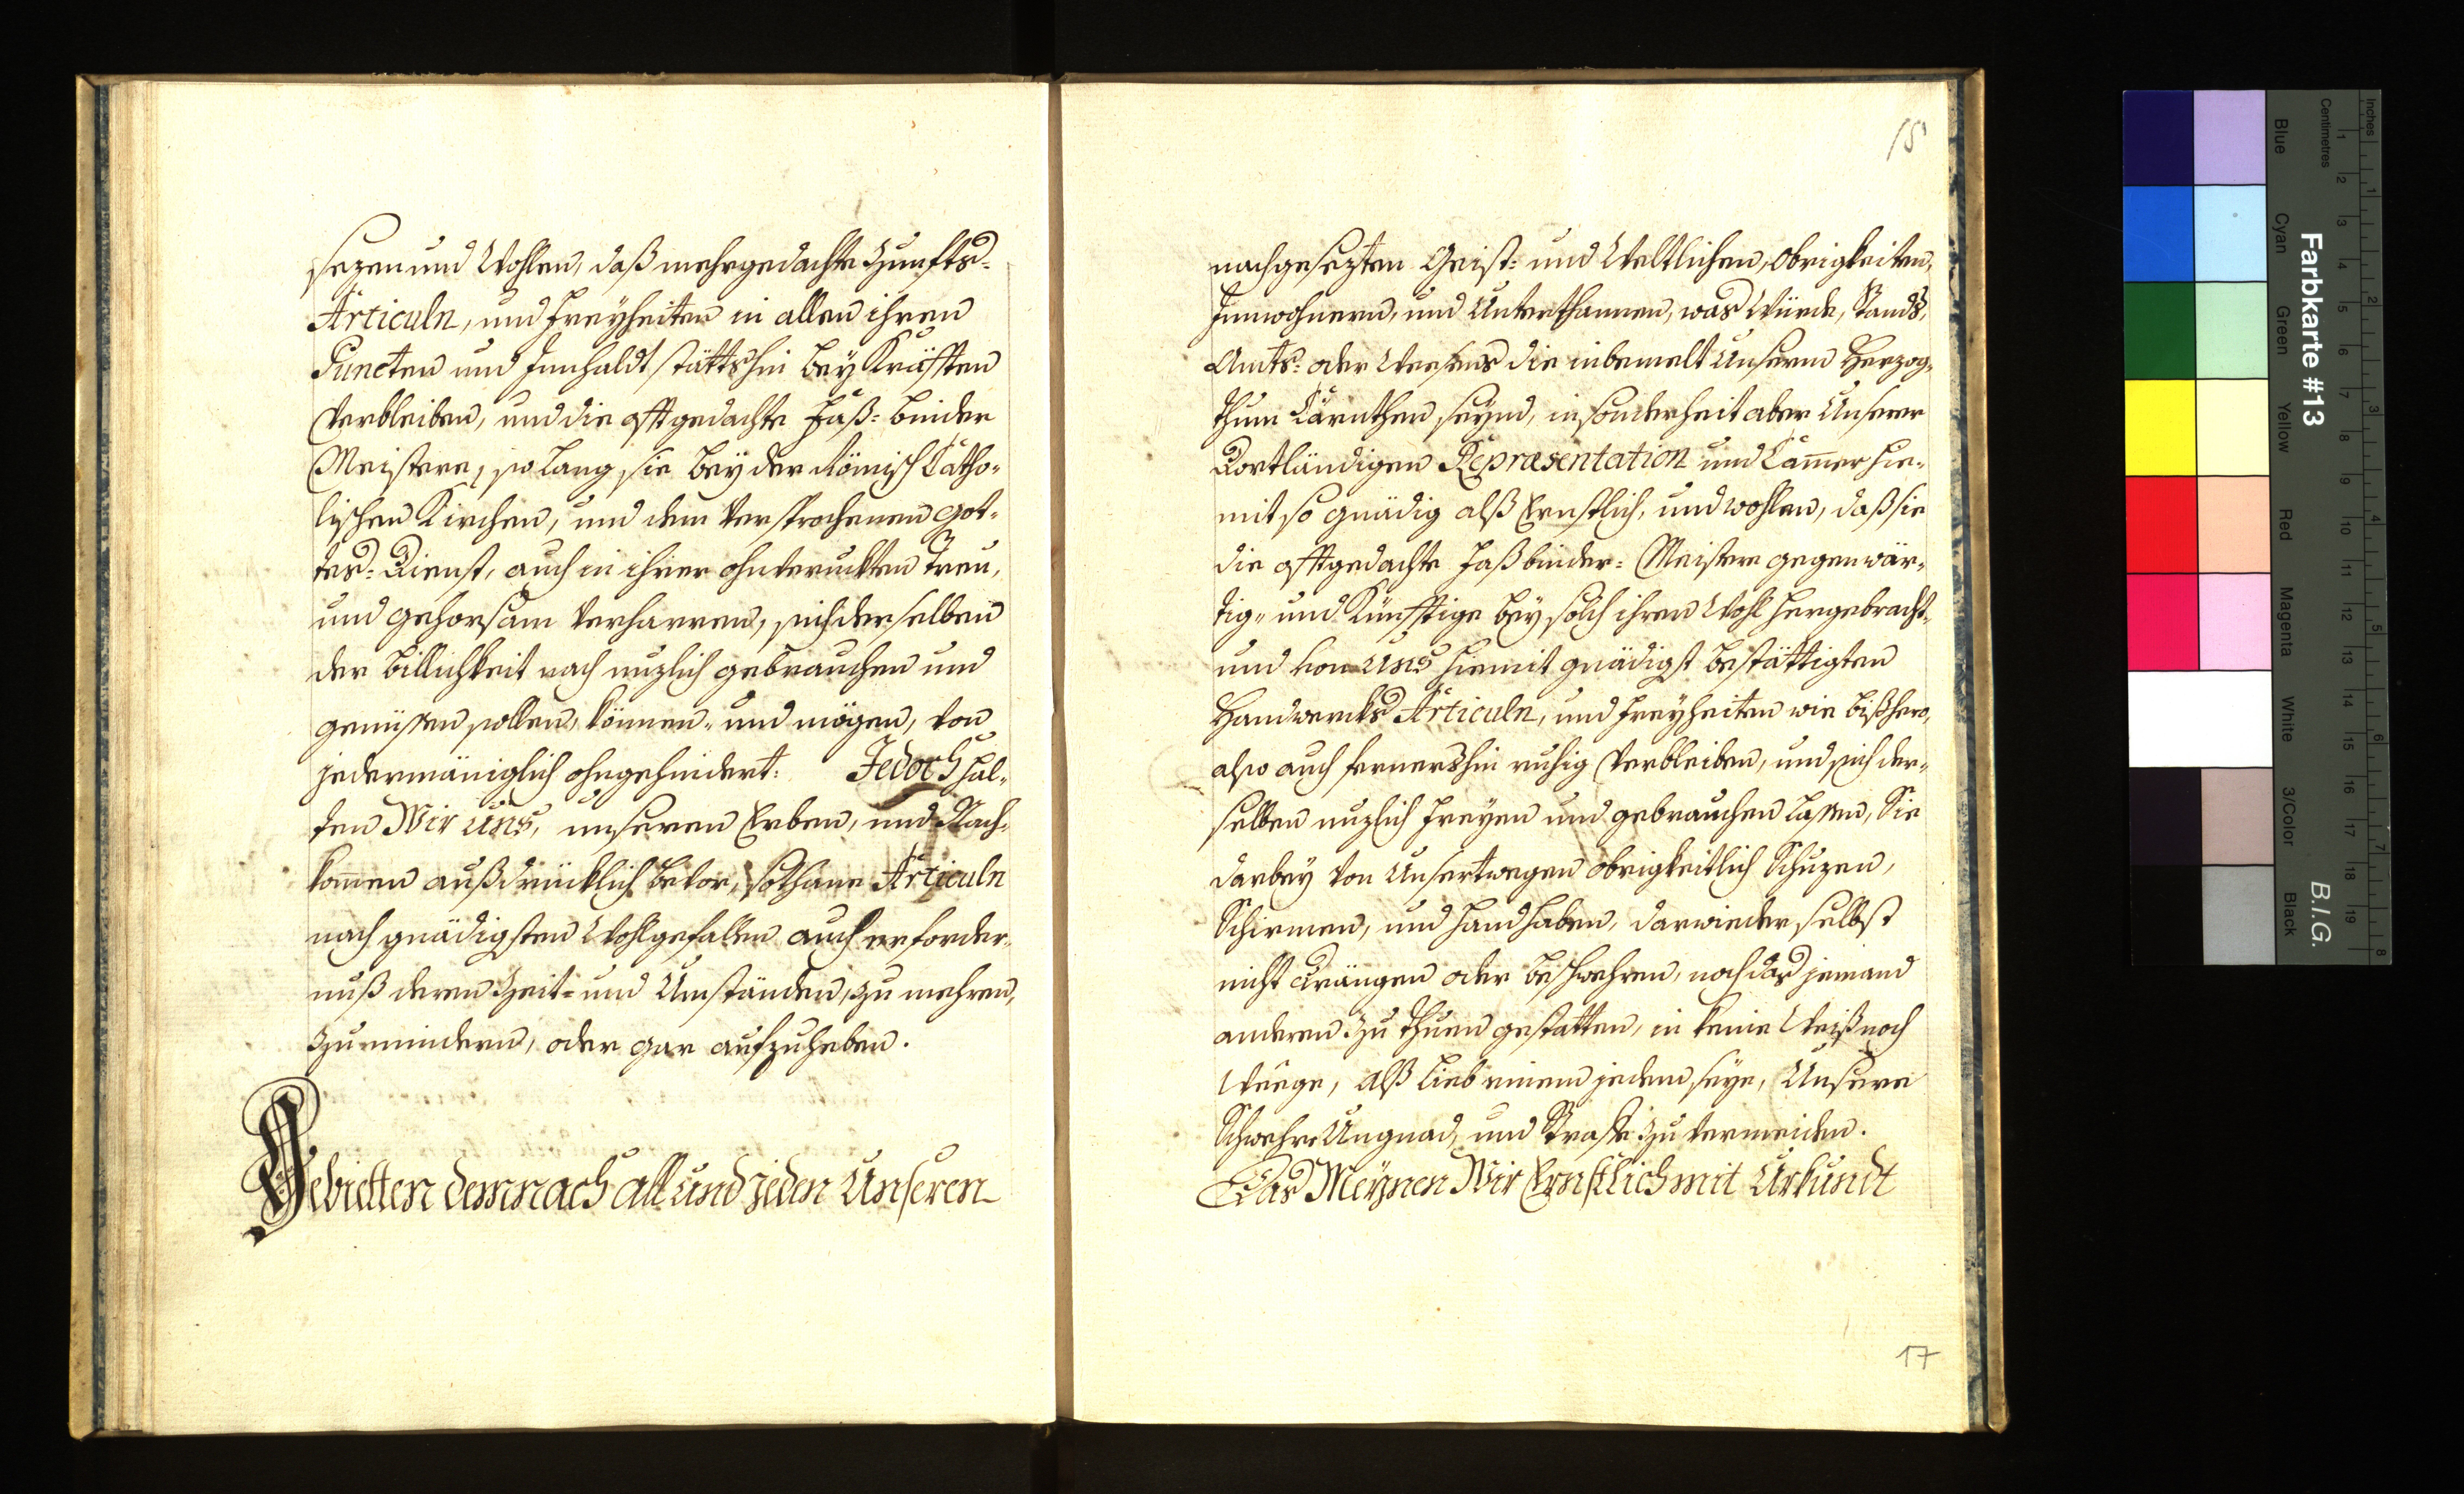 sezen und Wohlen, daß mehrgedachte Zunffts-
Articuln, und Freyheiten in allen ihren
Puncten und Innhaldt stättshin bey Kräfften
Verbleiben, und die offtgedachte Faß-binder
Meistere, so lang sie bey der Römisch Catho-
lischen Kirchen, und dem Versprochenen Got-
tes-Dienst, auch in ihrer ohnveruckten Treu,
und gehorsam Verharren, sich derselben
der billichkeit nach nuzlich gebrauchen und
genüssen sollen, können, und mögen, von
jedermäniglich ohngehindert: Jedoch hal-
ten Wir Uns, unseren Erben, und Nach-
komen außdrücklich bevor, sothane Articuln
nach gnädigsten Wohlgefallen auch erforder-
nuß deren Zeit- und Umständen, zu mehren,
zu mindern, oder gar aufzuheben.
Gebietten demnach all und jeden Unseren
15
nachgesezten Geist- und Weltlichen, Obrigkeiten,
Innwohnern, und Unterthannen, was Würde, Stands,
Amts- oder Weesens die in bemelt Unserm Herzog-
thum Cärnthen seynd, in sonderheit aber Unserer
Dortländigen Repræsentation und Camer hie-
mit so gnädig alß Ernstlich, und wohlen, daß sie
die offtgedachte Faßbinder-Meistere gegenwär-
tig- und Künfftige bey solch ihren Wohl hergebracht-
und von Uns hiemit gnädigst bestättigten
Handwercks Articuln, und Freyheiten wie bißhero,
also auch fernershin ruhig Verbleiben, und sich der-
selben nuzlich Freyen und gebrauchen lassen, Sie
darbey von Unsertwegen Obrigkeitlich Schuzen,
Schirmen, und handhaben, darwieder selbst
nicht Drängen oder beschwehren, noch das jemand
anderen zu thuen gestatten, in keine Weiß noch
Weege, alß lieb einem jedem seye, Unsere
Schwehre Ungnad, und Straffe zu vermeiden.
Das Meynen Wir Ernstlich mit Urkundt
17
Farbkarte #13
B.I.G.
Inches
Centimetres
Blue
Cyan
Green
Yellow
Red
Magenta
White
3/Color
Black